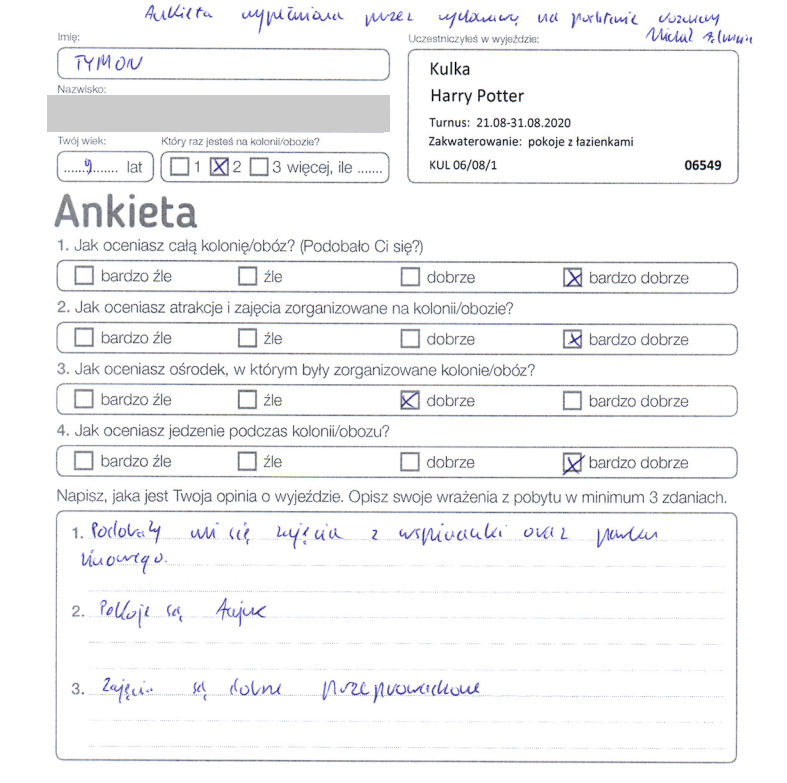 Ankieta wypełniona przez wychowawcę na podstawie rozmowy
Michał
Imię:
TYMON
Nazwisko:
Twój wiek:
Który raz jesteś na kolonii/obozie?
....9....... lat
1 2 3 więcej, ile .......
Uczestniczyłeś w wyjeździe:
Kulka
Harry Potter
Turnus: 21.08-31.08.2020
Zakwaterowanie: pokoje z łazienkami
KUL 06/08/1 06549
Ankieta
1. Jak oceniasz całą kolonię/obóz? (Podobało Ci się?)
bardzo źle źle dobrze bardzo dobrze
2. Jak oceniasz atrakcje i zajęcia zorganizowane na kolonii/obozie?
bardzo źle źle dobrze bardzo dobrze
3. Jak oceniasz ośrodek, w którym były zorganizowane kolonie/obóz?
bardzo źle źle dobrze bardzo dobrze
4. Jak oceniasz jedzenie podczas kolonii/obozu?
bardzo źle źle dobrze bardzo dobrze
Napisz, jaka jest Twoja opinia o wyjeździe. Opisz swoje wrażenia z pobytu w minimum 3 zdaniach.
1. Podobały mi się zajęcia z wspinanki oraz parku
linowego.
2. Pokoje są fajne
3. Zajęcia są dobrze przeprowadzone